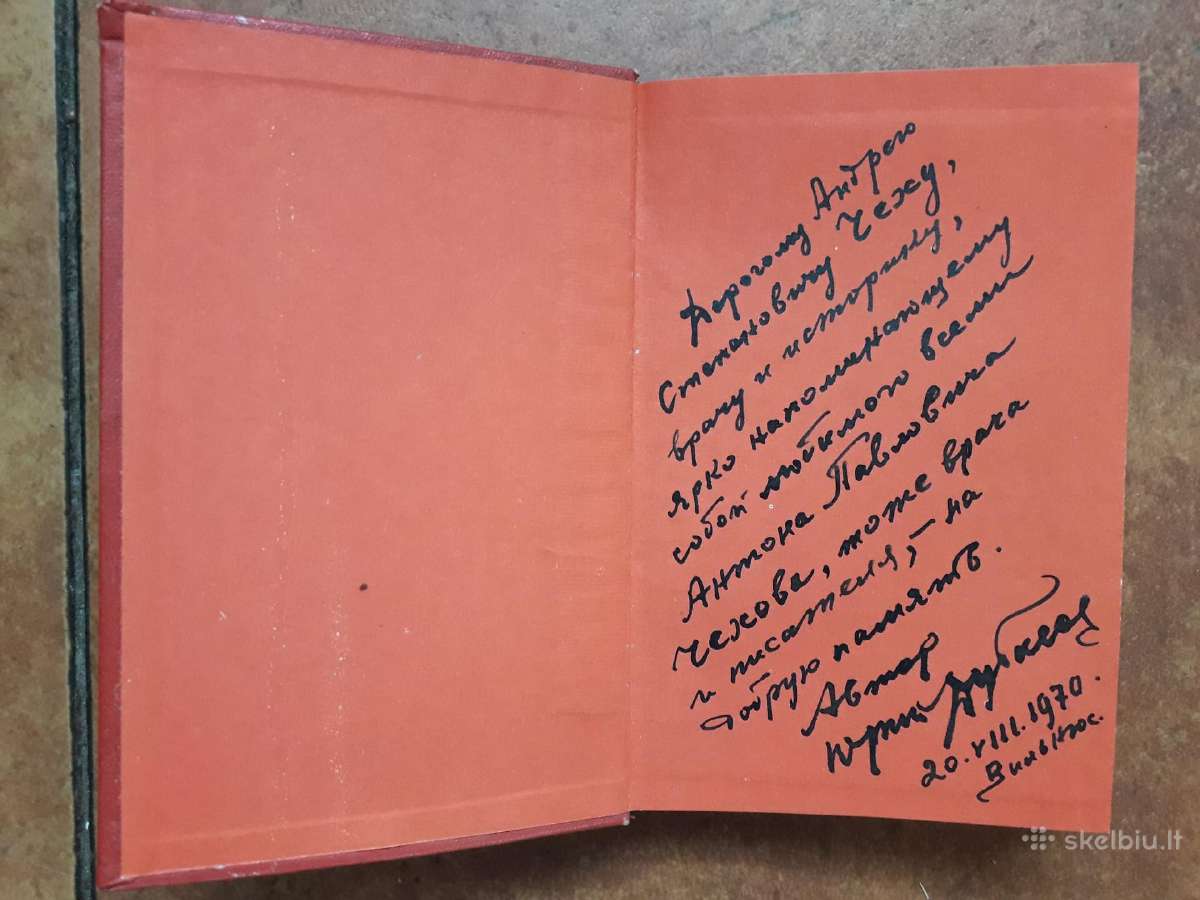 Дорогому Андрею
Степановичу Чеху,
врачу и историку,
ярко напоминающему
собой любимого всеми
Антона Павловича
Чехова, тоже врача
и писателя, – на
добрую память.
Автор
Юрий
20.VIII.1970.
Вильнюс.
skelbiu.lt